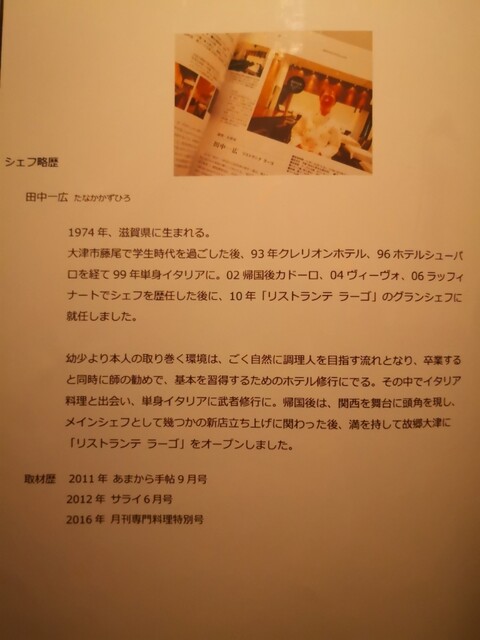 田中一広
シェフ略歴
田中一広 たなかかずひろ
1974年、滋賀県に生まれる。
大津市藤尾で学生時代を過ごした後、93年クレリオンホテル、96ホテルシューパ
ロを経て99年単身イタリアに。02帰国後カドーロ、04ヴィーヴォ、06ラッフィ
ナートでシェフを歴任した後に、10年「リストランテ ラーゴ」のグランシェフに
就任しました。
幼少より本人の取り巻く環境は、ごく自然に調理人を目指す流れとなり、卒業する
と同時に師の勧めで、基本を習得するためのホテル修行にでる。その中でイタリア
料理と出会い、単身イタリアに武者修行に。帰国後は、関西を舞台に頭角を現し、
メインシェフとして幾つかの新店立ち上げに関わった後、満を持して故郷大津に
「リストランテ ラーゴ」をオープンしました。
取材歴 2011年 あまから手帖9月号
2012年 サライ6月号
2016年 月刊専門料理特別号